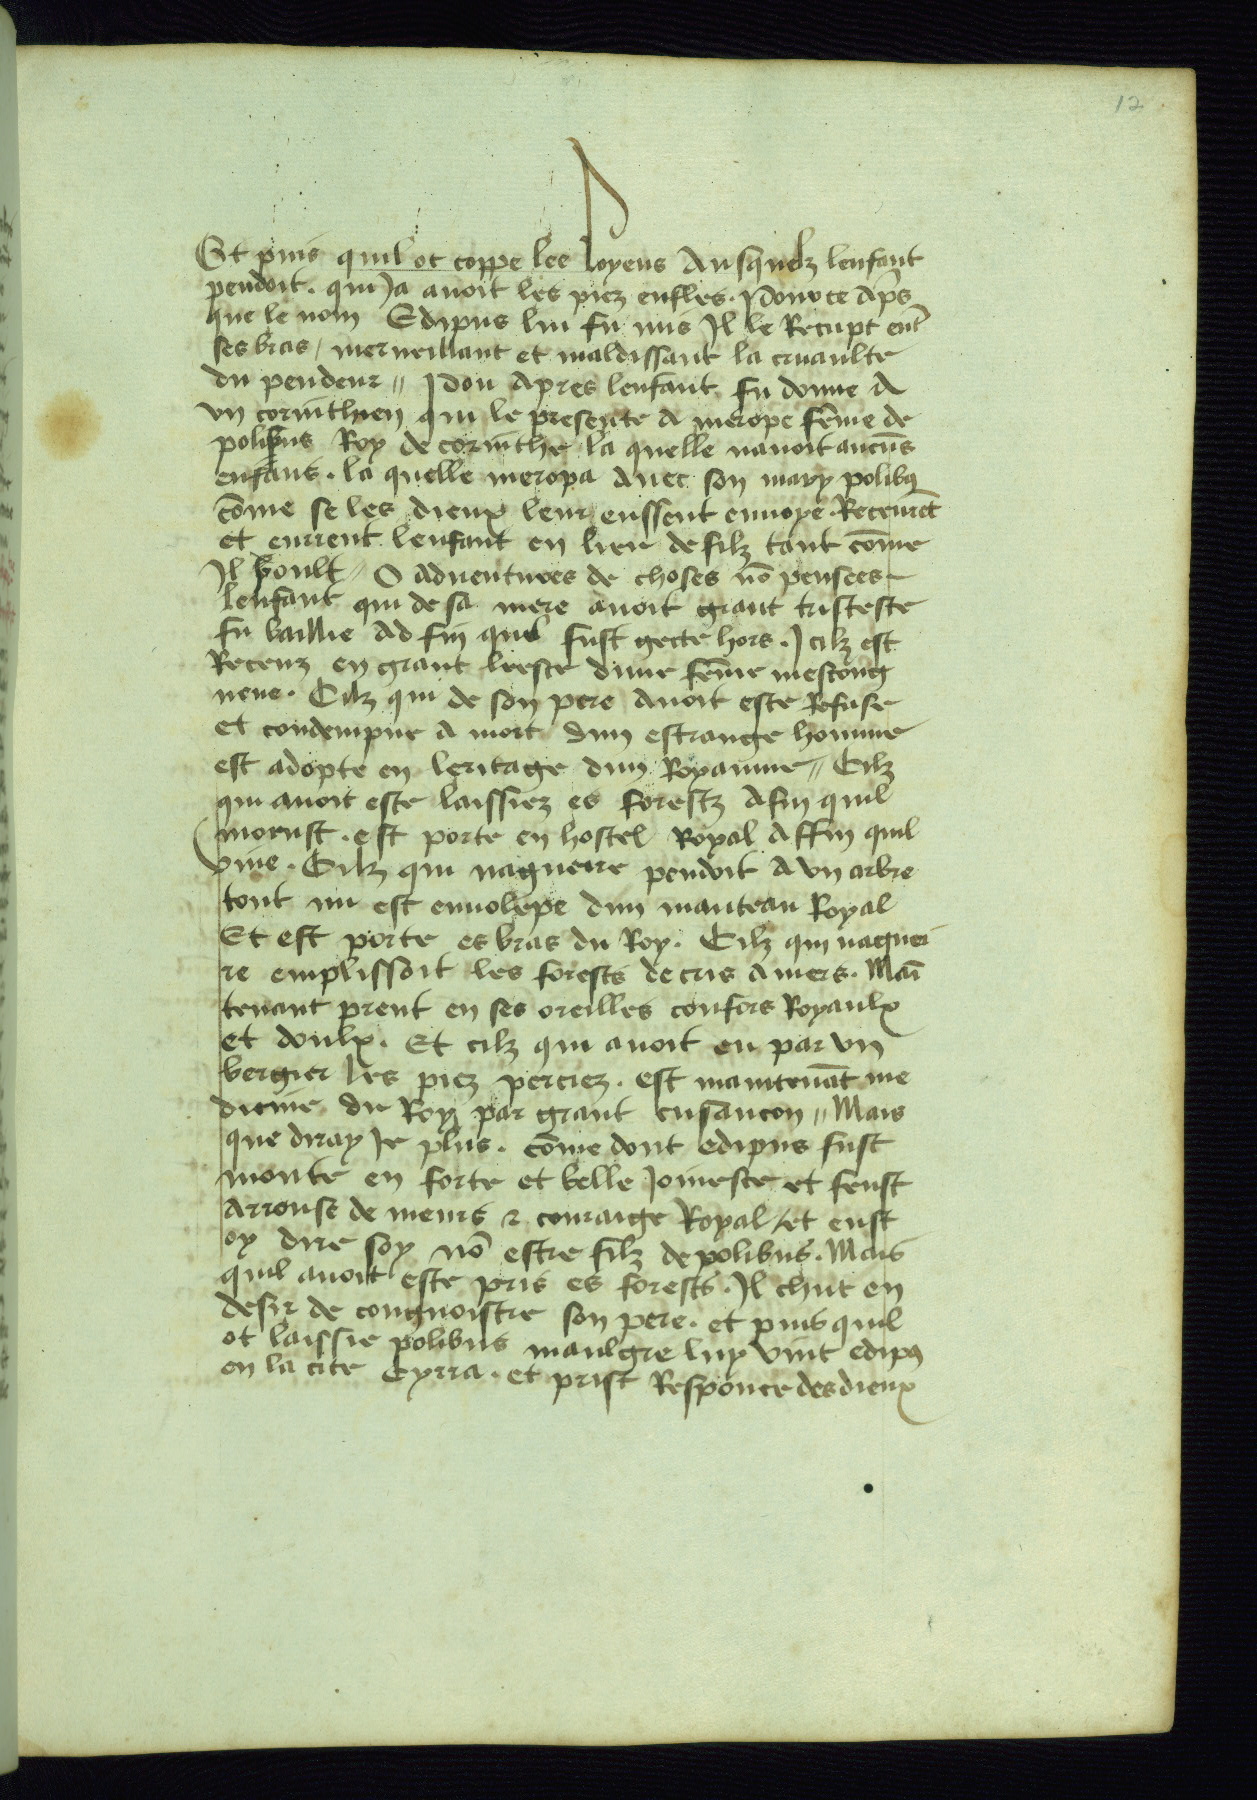 12
Et puis quil ot coppe les loyens Ausquelz lenfant
pendoit. qui Ja avoit les piez enfles. Dont ce Aps
que le nom Edipus lui fu mis Il le Recupt ent
ses bras / merveillant et mauldissant la cruaulte
du pendeur // Dou Apres lenfant fu donne A
un corinthien qui le presente A merope fēme de
polibus Roy de corinthe la quelle navoit aucūs
enfans. la quelle meropa Avec son mary polibꝯ
cōme se les dieux leur eussent envoye. Receurēt
et eurrent lenfant en lieu de filz tant cōme
Il voult // O adventures de choses nō pensees
lenfant qui de sa mere avoit grant tristeste
fu baillie Ad fin quil fust gecte hors. Icilz est
Receuz en grant leesce dune fēme mescong
neue. Cilz qui de son pere Avoit este Refuse
et condempne A mort dun estrange homme
est adopte en leritage dun Royaume // Cilz
qui avoit este laissiez es forestz Afin quil
morust. est porte en hostel Royal Affin quil
vive. Cilz qui naguerre pendoit A un arbre
tout nu est envolepe dun manteau Royal
Et est porte es bras du Roy. Cilz qui naguei
re emplissoit les forests de cris Amers. Mai
tenant prent en ses oreilles confors Royaulx
et doulx. Et cilz qui avoit eu par un
bergier les piez perciez. est maintenāt me
dicine du Roy par grant cusancon // Mais
que diray Je plus. cōme dont edipus fust
monte en forte et belle Jonesce et feust
Arrouse de meurs & couraige Royal / et eust
oy dire soy nō estre filz de polibus. Mais
quil avoit este pris es forests. Il chut en
desir de congnoistre son pere. et puis quil
ot laissie polibus maulgre luy vint edipꝯ
en la cite Cyrra. et prist Responce des dieux